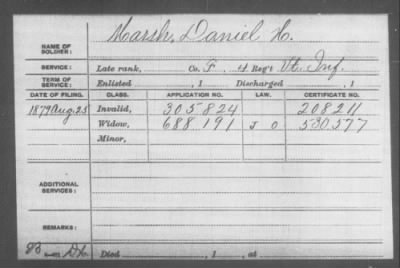 Marsh, Daniel H.
NAME OF SOLDIER:
SERVICE: Late rank, Co. F, 4 Reg't Vt. Inf.
TERM OF SERVICE: Enlisted , 1 Discharged , 1
DATE OF FILING. CLASS. APPLICATION NO. LAW. CERTIFICATE NO.
1879 Aug. 25 Invalid, 305824 208211
Widow, 688.191 J O 530577
Minor,
ADDITIONAL SERVICES:
REMARKS:
Died , 1 , at